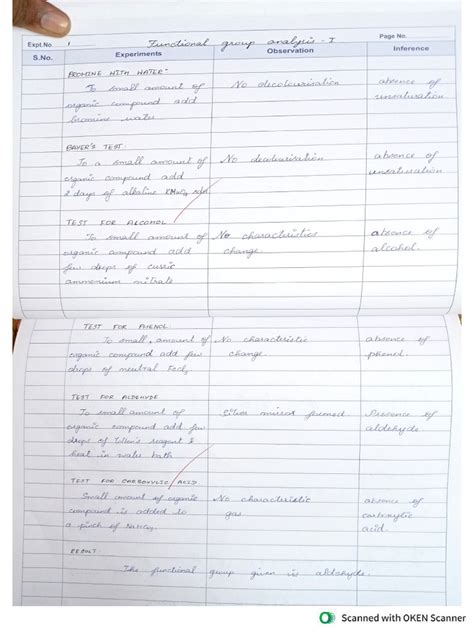 Expt.No. 1 Functional group analysis - I Page No.
S.No. Experiments Observation Inference
BROMINE WITH WATER:
To small amount of No decolourisation absence of
organic compound add unsaturation
bromine water
BAYER'S TEST:
To a small amount of No absence of
organic compound add unsaturation
2 of alkaline KMnO4
TEST FOR ALCOHOL
To small amount of No characteristics absence of
organic compound add change alcohol.
few drops of
ammonium nitrate
TEST FOR PHENOL
To small amount of No characteristic absence of
organic compound add few change. phenol.
drops of neutral
TEST FOR ALDEHYDE
To small amount of Silver mirror formed Presence of
organic compound add few aldehyde.
drops of reagent &
heat in water bath
TEST FOR CARBOXYLIC ACID
Small amount of organic No characteristic absence of
compound is added to gas carboxylic
a pinch of acid.
RESULT:
The functional group given is aldehyde.
Scanned with OKEN Scanner